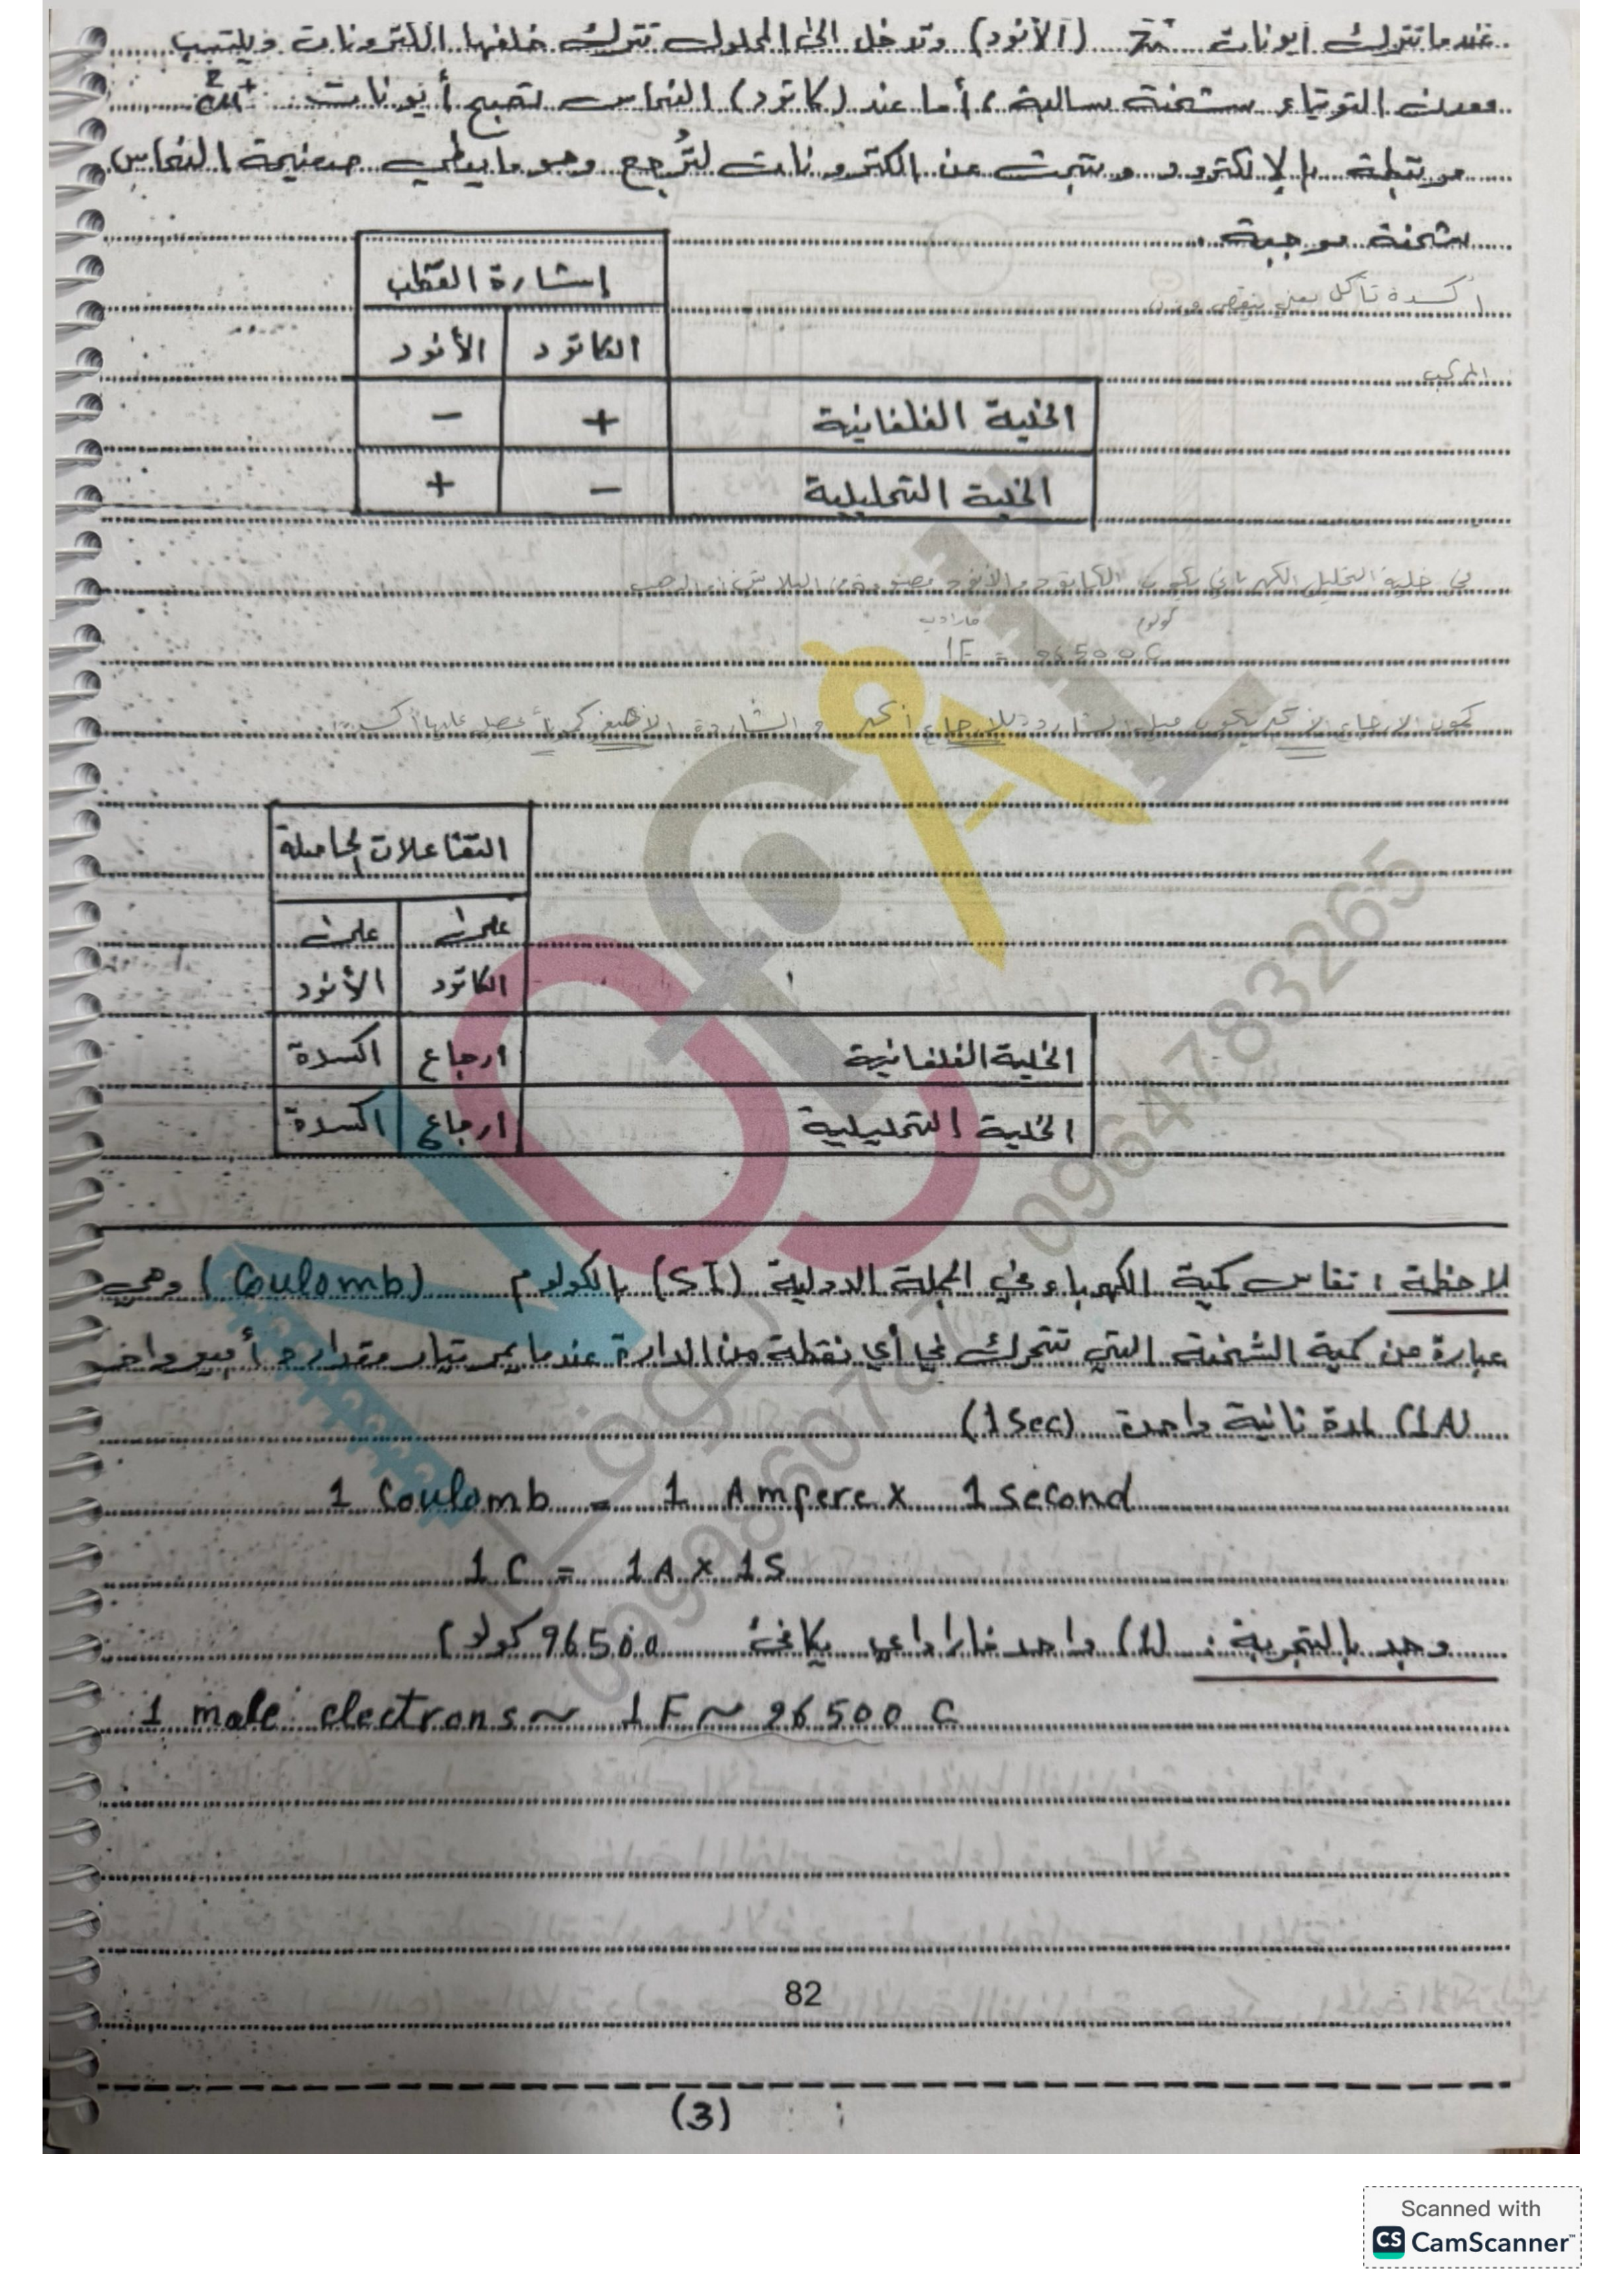 عندما تترك أيونات Zn (الأنود) وتدخل الى المحلول تترك خلفها الكترونات ويكتسب
معدن التوتياء شحنة سالبة، أما عند (كاتود) النحاس تصبح أيونات Cu2+
مرتبطة بالإلكترود وبتبحث عن الكترونات لتُرجع وهو ما يعطي صفيحة النحاس
شحنة موجبة.
أكسدة تآكل يعني ينقص وزن
المركب
إشارة القطب
الكاتود الأنود
الخلية الغلفانية + -
الخلية التحليلية - +
في خلية التحليل الكهربائي يكون الكاتود والأنود مصنوعة من البلاتين أو الذهب
كولوم فاراداي
1F = 96500C
كمون الارجاع الأكبر يكون ميل الشاردة للإرجاع أكبر والشاردة الأضعف
التفاعلات الحاصلة
على على
الكاتود الأنود
الخلية الغلفانية ارجاع اكسدة
الخلية التحليلية ارجاع اكسدة
لاحظة: تقاس كمية الكهرباء في الجملة الدولية (SI) بالكولوم (Coulomb) وهي
عبارة عن كمية الشحنة التي تتحرك في أي نقطة من الدارة عندما يمر تيار مقداره أمبير واحد
(1A) لمدة ثانية واحدة (1Sec)
1 Coulomb = 1 Ampere x 1 second
1 C = 1A x 1S
وجد بالتجربة: (1) واحد فاراداي يكافئ 96500 كولوم
1 mole electrons ~ 1F ~ 96500 C
82
(3)
0964783265
Scanned with
CS CamScanner